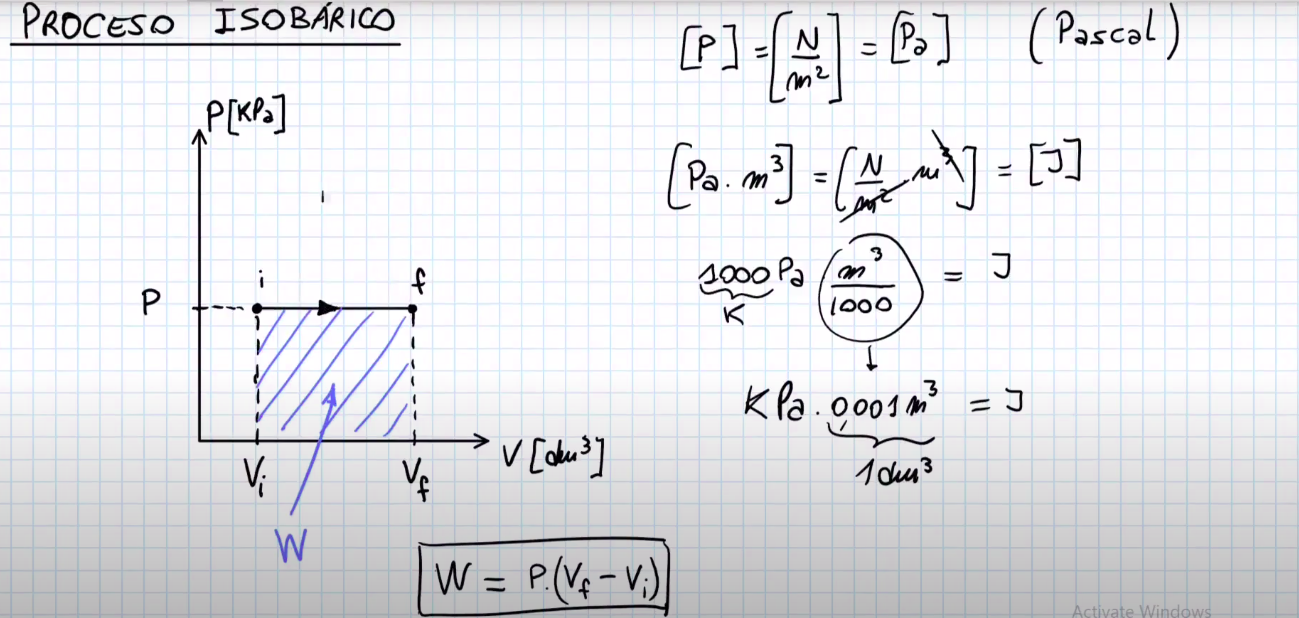 PROCESO ISOBÁRICO
P[KPa]
i
f
P
Vi
Vf
V [dm³]
W
W = P.(Vf - Vi)
[P] = [N/m²] = [Pa] (Pascal)
[Pa. m³] = [N/m² . m³] = [J]
1000 Pa m³/1000 = J
K
KPa . 0,001 m³ = J
1 dm³
Activate Windows